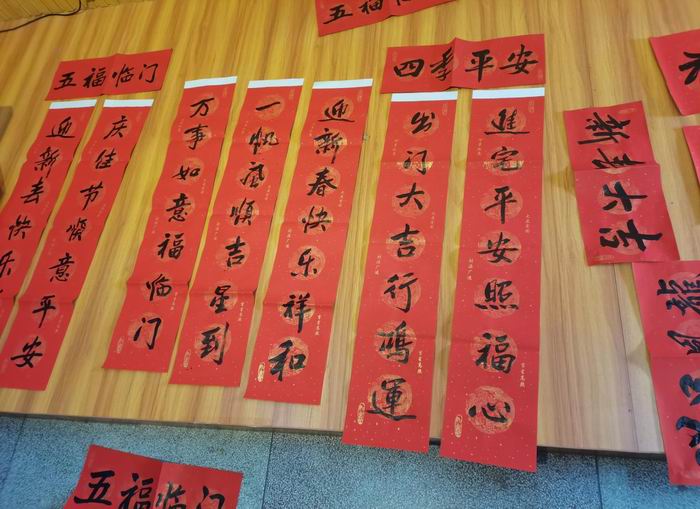 五福临门
五福临门
四季平安
迎新去快乐
庆佳节顺意平安
万事如意福临门
一帆風顺吉星到
迎新春快乐祥和
出门大吉行鸿運
進宅平安照福心
新年大吉
五福临门